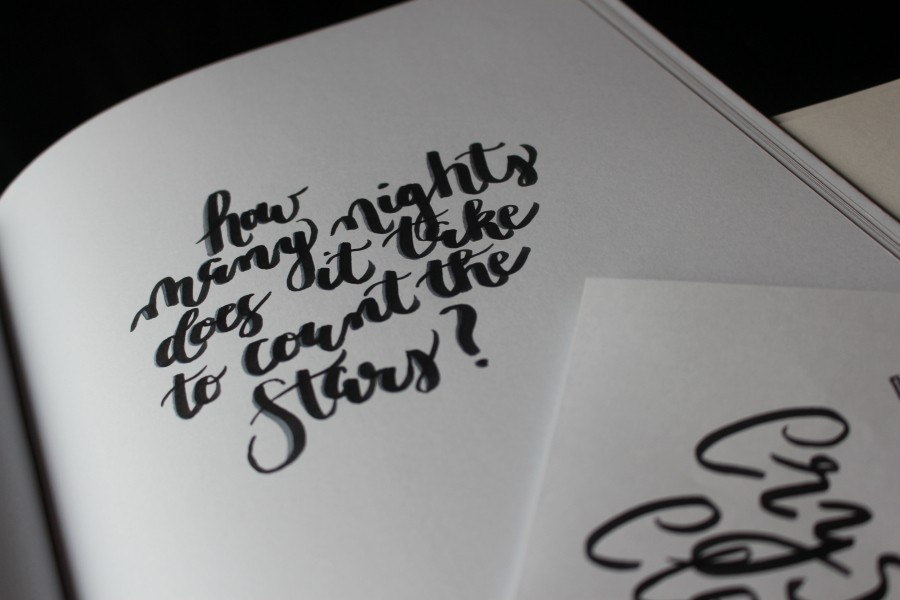 how
many nights
does it take
to count the
Stars?